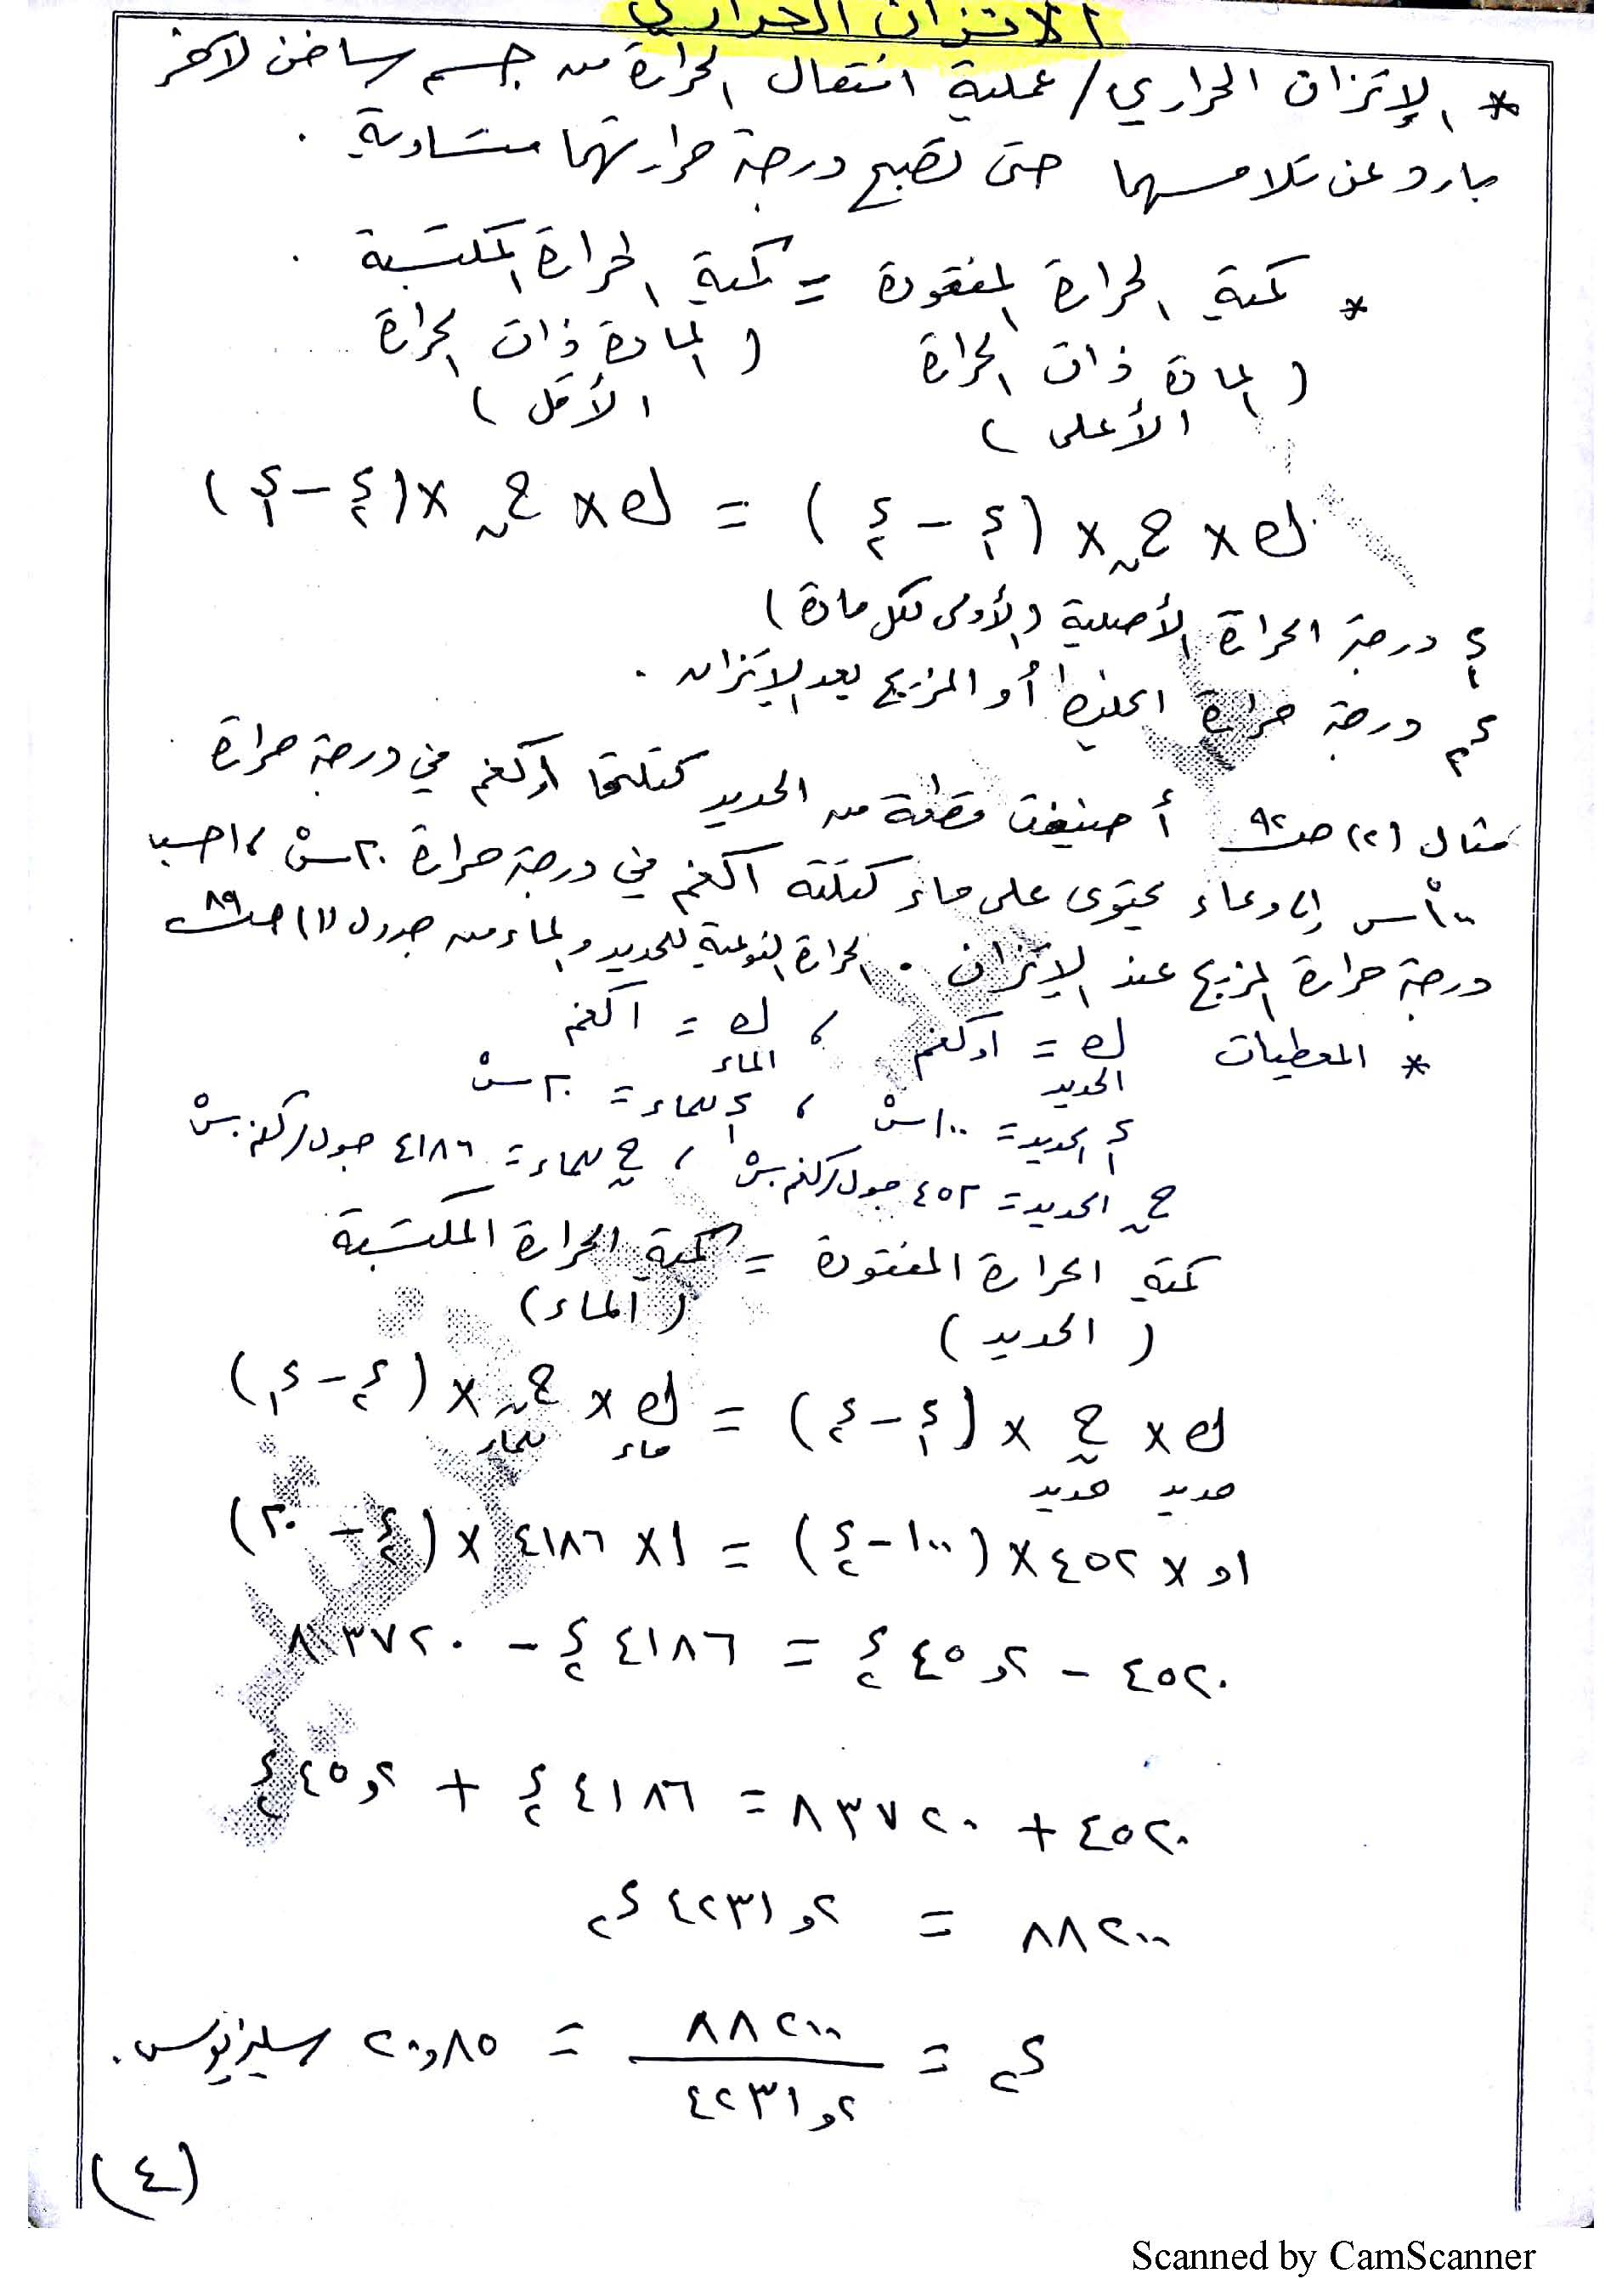 الاتزان الحراري
* الإتزان الحراري / عملية انتقال الحرارة من جسم ساخن لآخر
بارد عن تلامسهما حتى تصبح درجة حرارتهما متساوية .
* كمية الحرارة المفقودة = كمية الحرارة المكتسبة .
( المادة ذات الحرارة الأعلى ) ( المادة ذات الحرارة الأقل )
ك × ح ن × ( د١ - د٢ ) = ك × ح ن × ( د٢ - د١ )
د١ درجة الحرارة الأصلية ( الأولى لكل مادة )
د٢ درجة حرارة الخليط أو المزيج بعد الإتزان .
مثال (٢) صـ٩٢ أضيفت قطعة من الحديد كتلتها ١و كغم في درجة حرارة
١٠٠ْس إلى وعاء يحتوى على ماء كتلته ١كغم في درجة حرارة ٢٠ْس ، احسب
درجة حرارة المزيج عند الإتزان . الحرارة النوعية للحديد والماء من جدول (١) صـ٨٩
* المعطيات ك الحديد = ١و كغم ، ك الماء = ١كغم
د١ الحديد = ١٠٠ْس ، د١ للماء = ٢٠ْس
ح ن الحديد = ٤٥٢ جول/كغم.سْ ، ح ن للماء = ٤١٨٦ جول/كغم.سْ
كمية الحرارة المفقودة = كمية الحرارة المكتسبة
( الحديد ) ( الماء )
ك حديد × ح ن حديد × ( د١ - د٢ ) = ك ماء × ح ن للماء × ( د٢ - د١ )
١و × ٤٥٢ × ( ١٠٠ - د٢ ) = ١ × ٤١٨٦ × ( د٢ - ٢٠ )
٤٥٢٠ - ٤٥و٢ د٢ = ٤١٨٦ د٢ - ٨٣٧٢٠
٤٥٢٠ + ٨٣٧٢٠ = ٤١٨٦ د٢ + ٤٥و٢ د٢
٨٨٢٠٠ = ٤٢٣١و٢ د٢
د٢ = ٨٨٢٠٠ / ٤٢٣١و٢ = ٢٠و٨٥ سليزيوس .
(٤)
Scanned by CamScanner